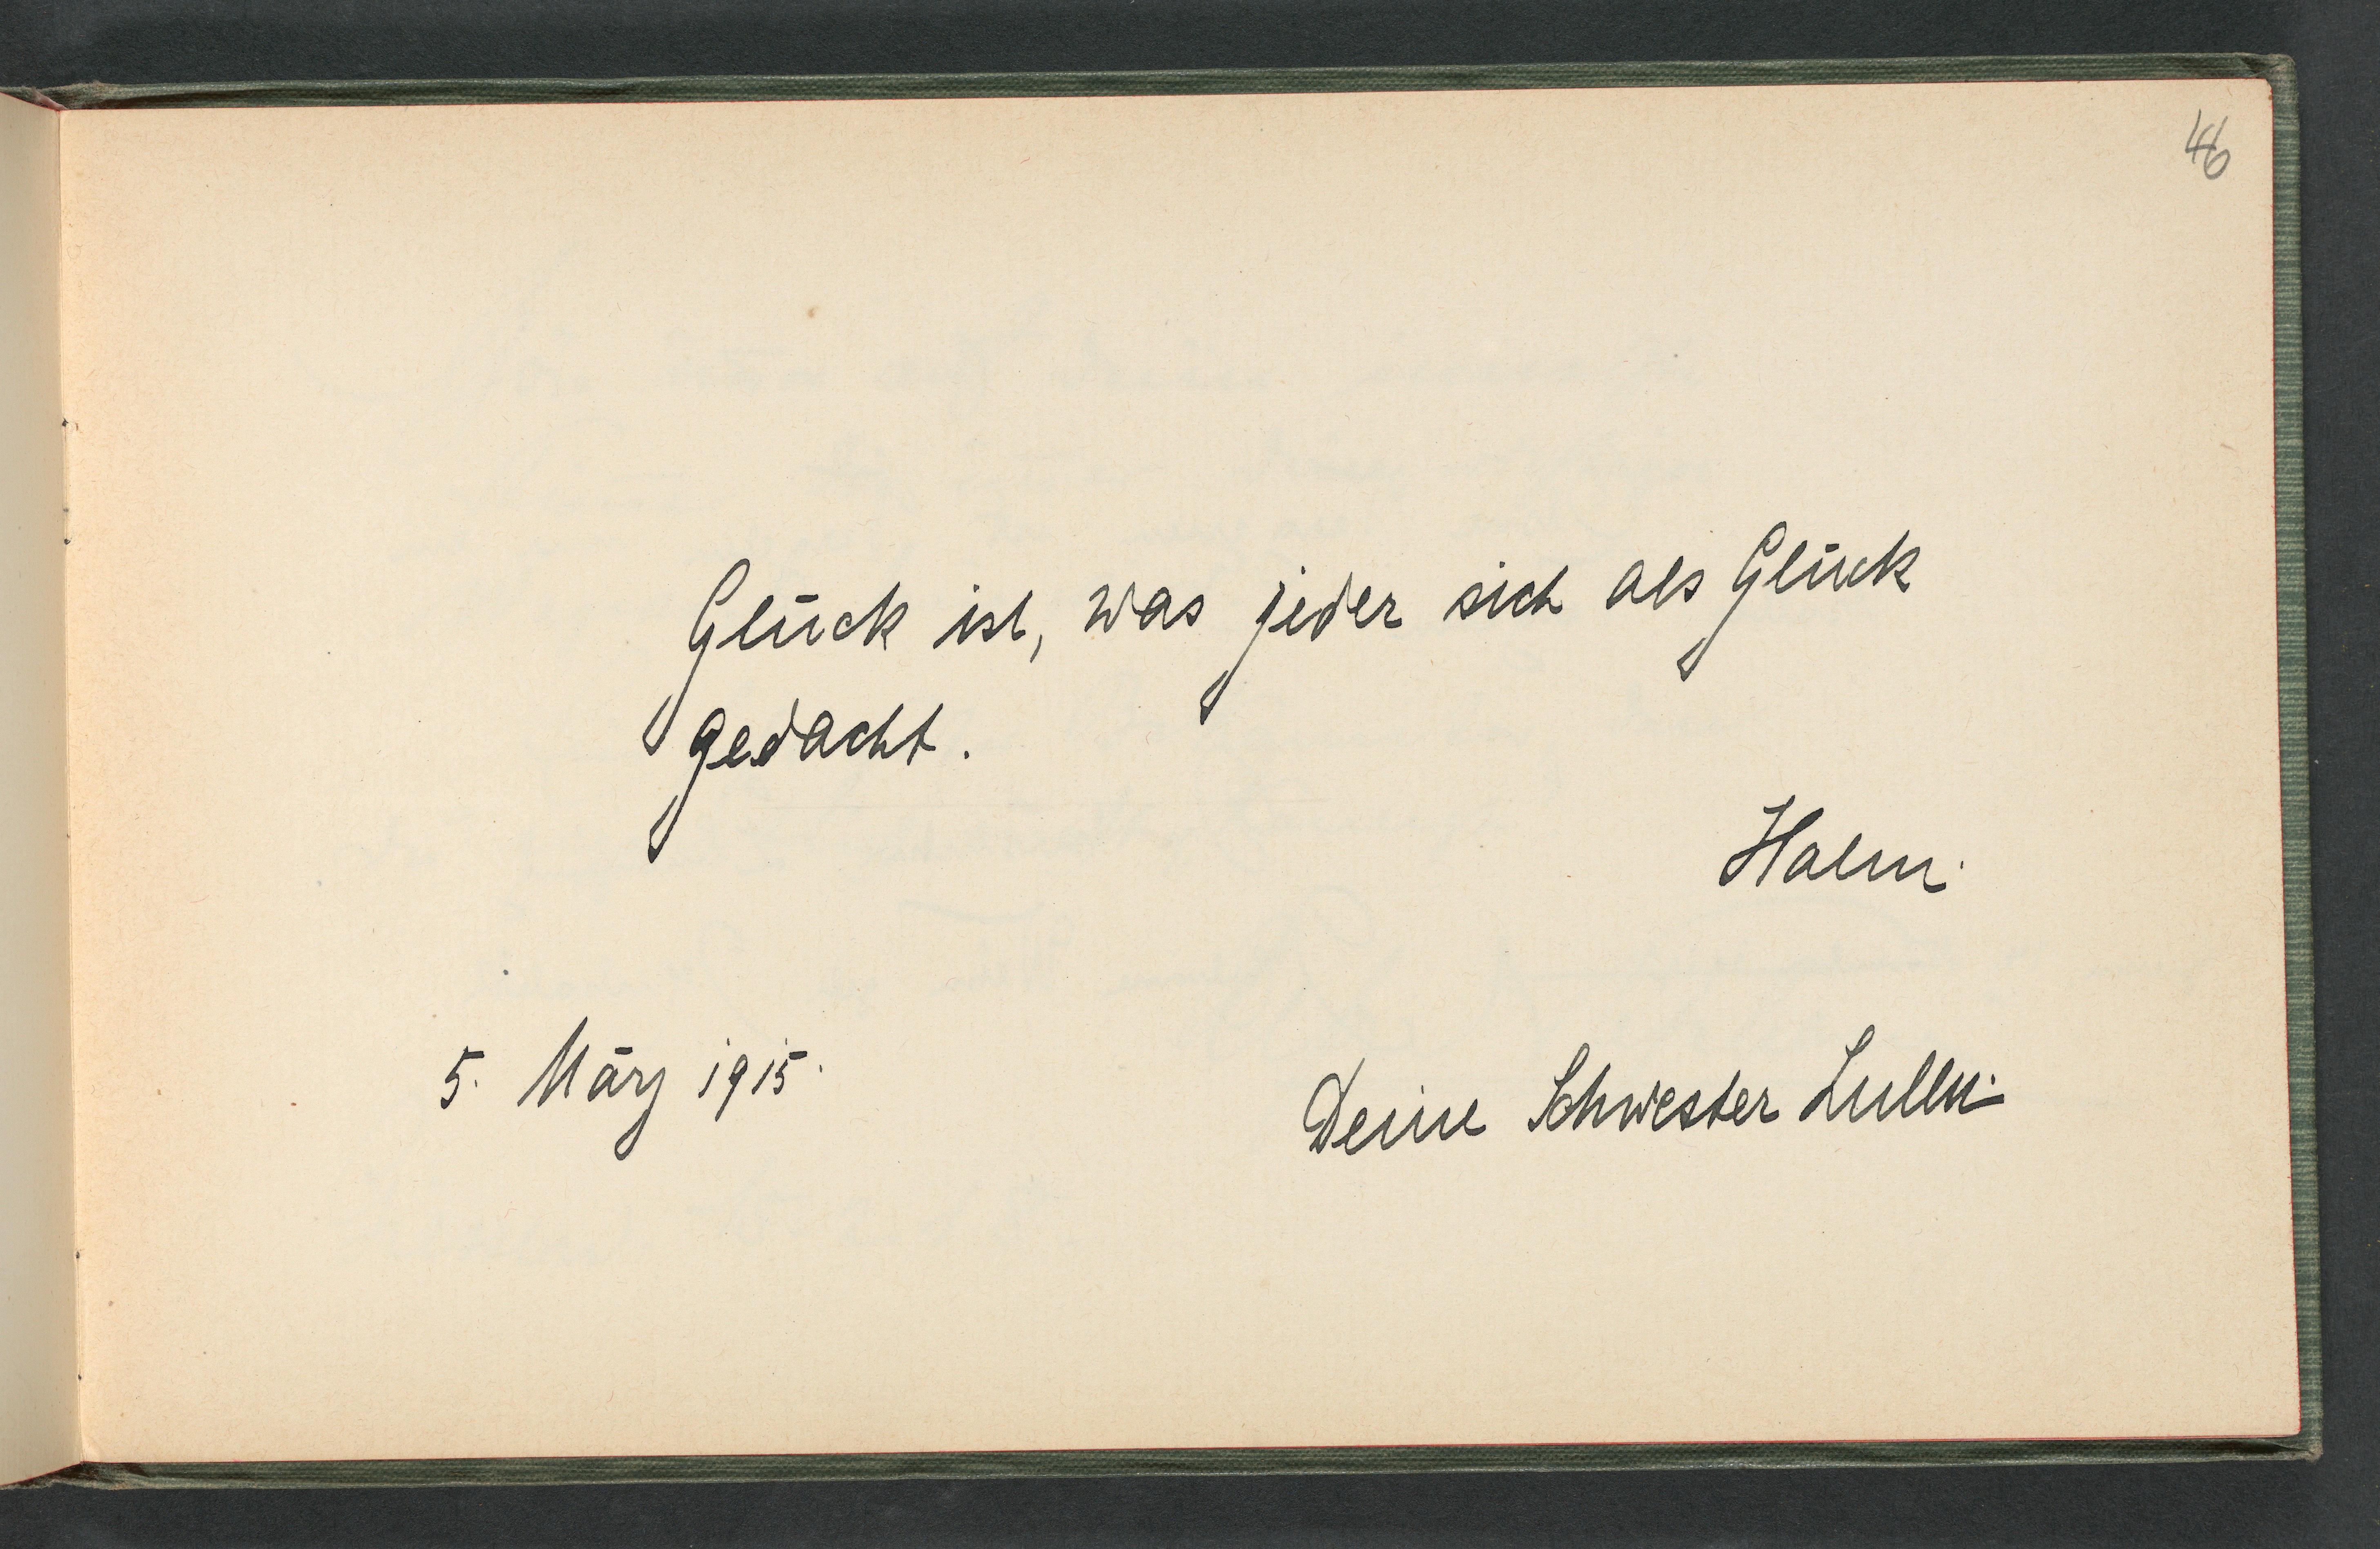 46
Glück ist, was jeder sich als Glück
gedacht.
Halm.
5. März 1915.
Deine Schwester